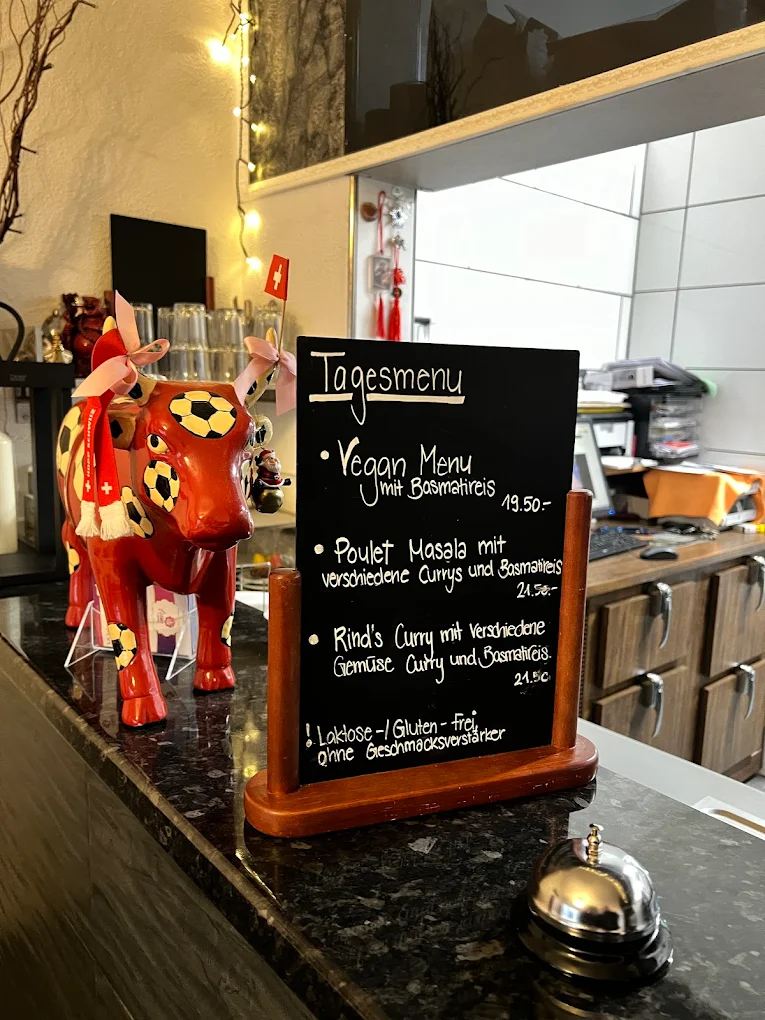 Tagesmenu
• Vegan Menu
mit Basmatireis
19.50.-
• Poulet Masala mit
verschiedene Currys und Basmatireis
21.50.-
• Rind's Curry mit Verschiedene
Gemüse Curry und Basmatireis.
21.50
! Laktose-/Gluten-frei,
ohne Geschmacksverstärker
HOPP SCHWIIZ